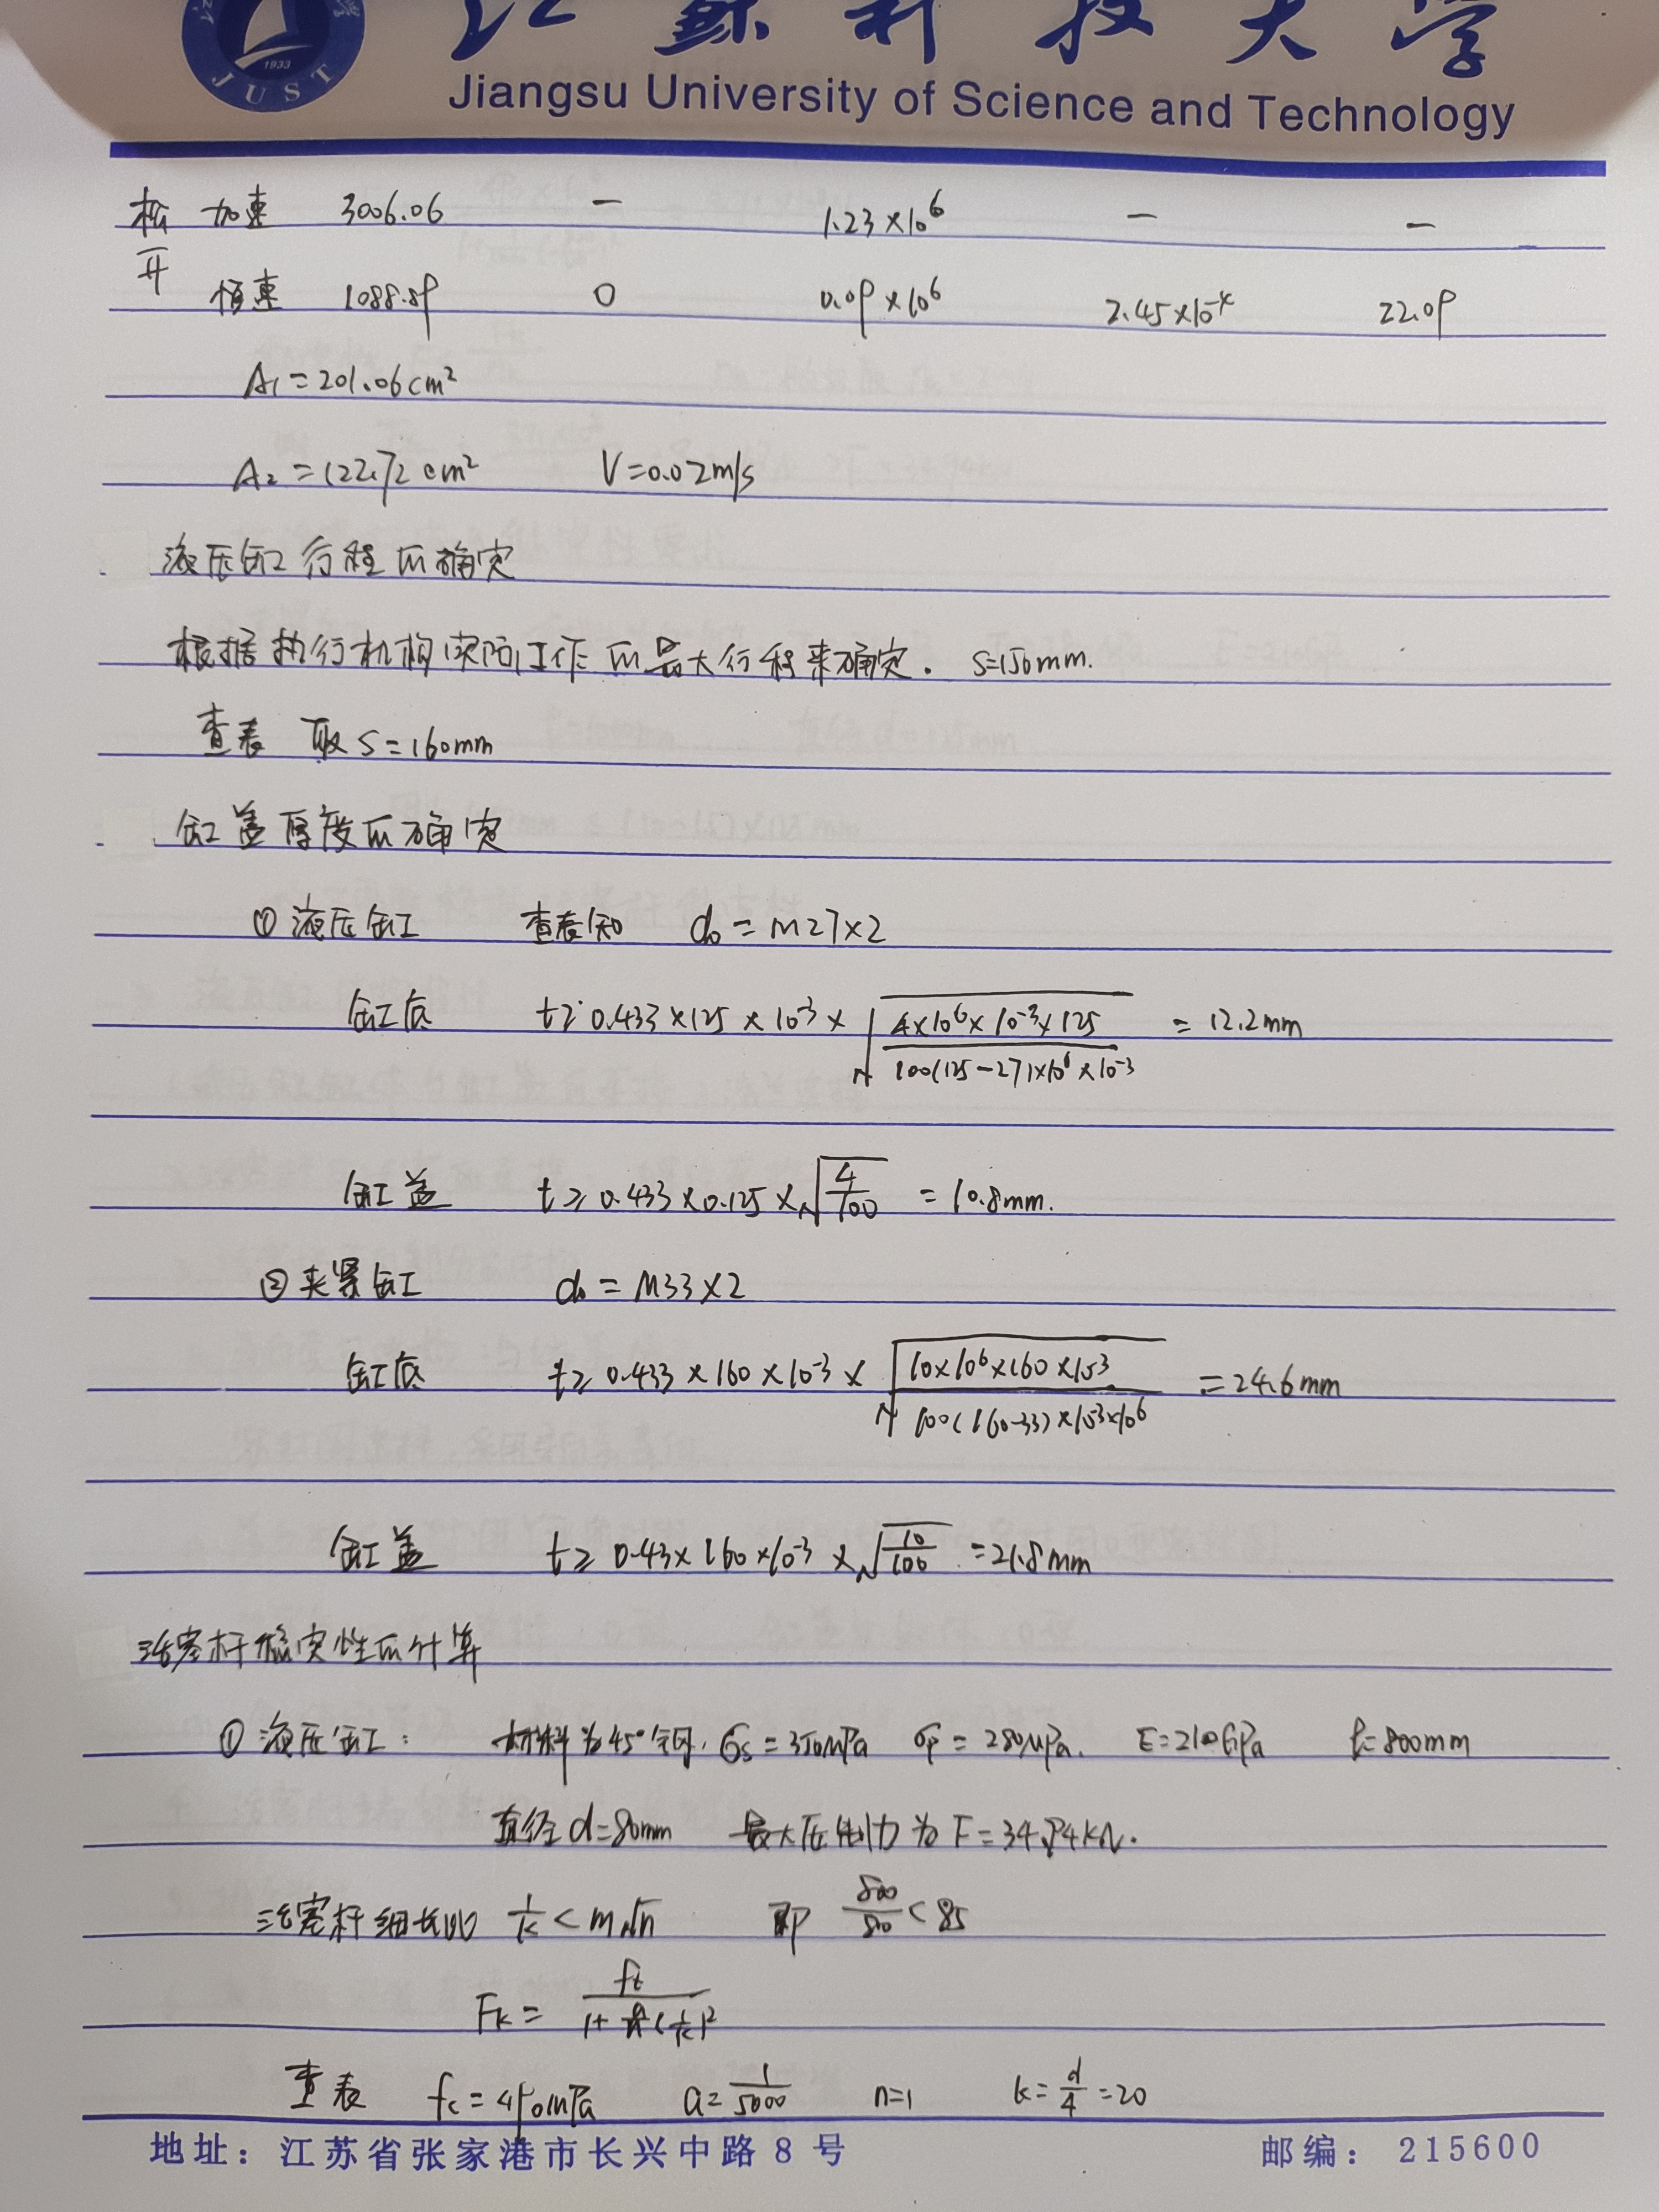 江苏科技大学
1933
JUST
Jiangsu University of Science and Technology
松开 加速 3006.06 — 1.23×10⁶ — —
恒速 1088.89 0 0.09×10⁶ 2.45×10⁻⁴ 22.09
A₁=201.06cm²
A₂=122.72cm² V=0.02m/s
液压缸行程的确定
根据执行机构实际工作的最大行程来确定. S=150mm.
查表 取S=160mm
缸盖厚度的确定
① 液压缸 查表知 d₀=M27×2
缸底 t≥0.433×125×10⁻³×√(4×10⁶×10⁻³×125/100(125-27)×10⁶×10⁻³) =12.2mm
缸盖 t≥0.433×0.125×√(4/100) =10.8mm.
② 夹紧缸 d₀=M33×2
缸底 t≥0.433×160×10⁻³×√(10×10⁶×160×10⁻³/100(160-33)×10⁻³×10⁶) =24.6mm
缸盖 t≥0.43×160×10⁻³×√(10/100) =21.8mm
活塞杆稳定性的计算
① 液压缸: 材料为45°钢. σs=350MPa σp=280MPa. E=210GPa l=800mm
直径d=80mm 最大压制力为F=34.94kN.
活塞杆细长比 l/k<m√n 即 800/80<85
Fk=
查表 fc=490MPa a=1/5000 n=1 k=d/4=20
地址：江苏省张家港市长兴中路8号 邮编：215600